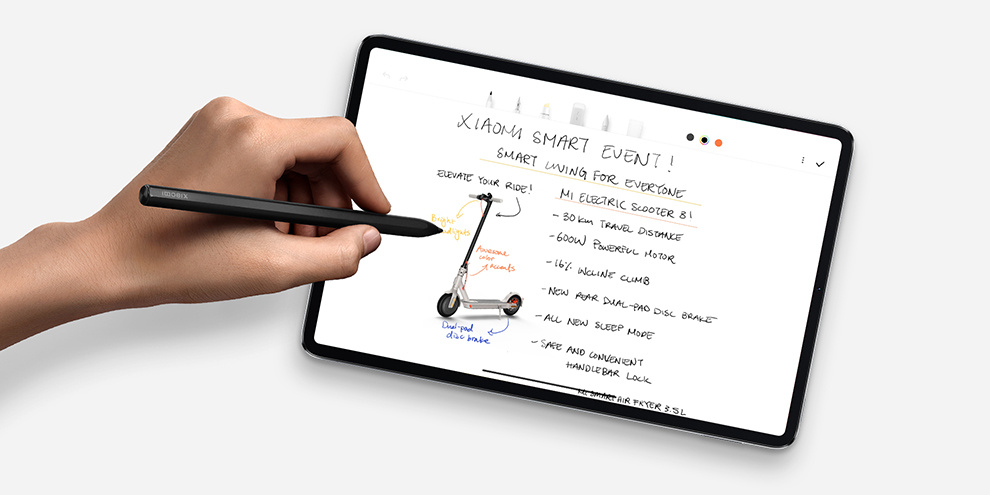 XIAOMI SMART EVENT!
SMART LIVING FOR EVERYONE
ELEVATE YOUR RIDE!
MI ELECTRIC SCOOTER 3!
Bright
headlights
Awesome
color
accents
Dual-pad
disc brake
- 30 km TRAVEL DISTANCE
- 600W POWERFUL MOTOR
- 16% INCLINE CLIMB
- NEW REAR DUAL-PAD DISC BRAKE
- ALL NEW SLEEP MODE
- SAFE AND CONVENIENT
HANDLEBAR LOCK
MI SMART AIR FRYER 3.5L
xiaomi